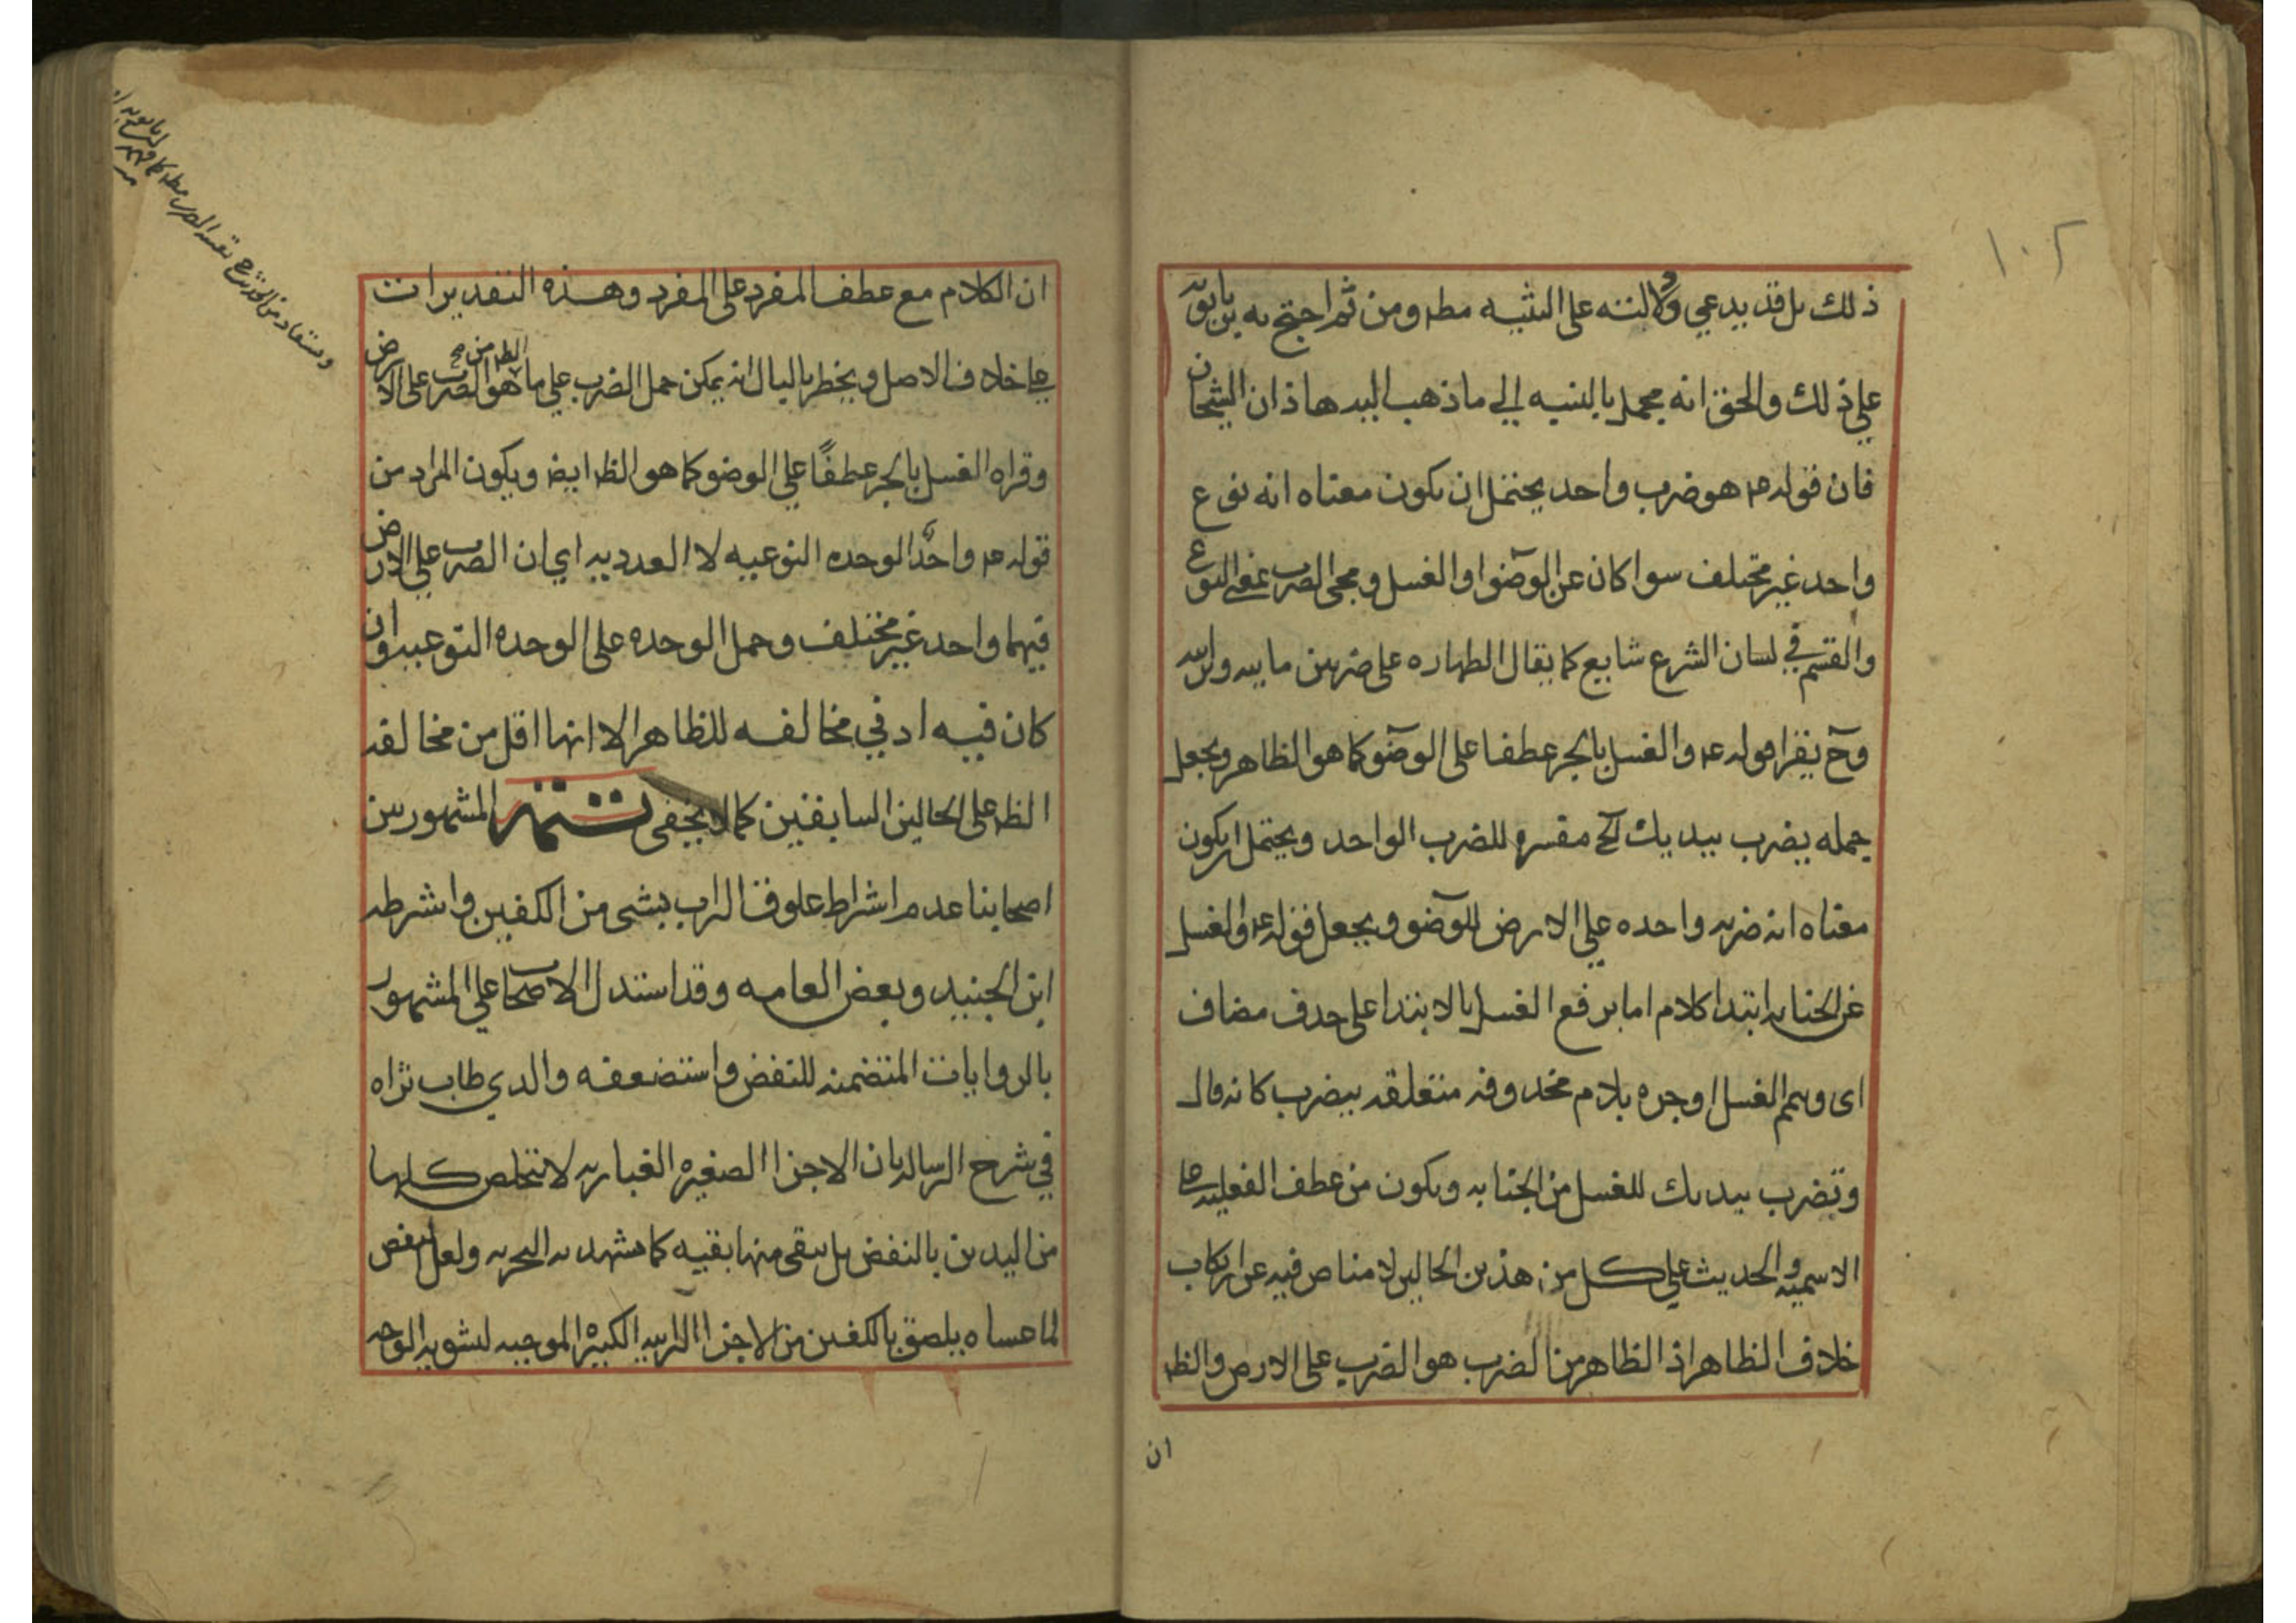 ١٠٢
ذلك بل قد يدعي دلالته على التثنيه مطه ومن ثم احتج به بن بابويه
علي ذلك والحق انه محمل بالنسبه الي ما ذهب اليه هاذان الشيخان
فان قوله ع هو ضرب واحد يحتمل ان يكون معناه انه نوع
واحد غير مختلف سوا كان عن الوضوا والغسل ومجى الضرب بمعنى النوع
والقسم في لسان الشرع شايع كما يقال الطهاره على ضربين مائيه وترابيه
وح يقرا قوله ع والغسل بالجر عطفا على الوضو كما هو الظاهر ويجعل
جمله يضرب بيديك الخ مفسره للضرب الواحد ويحتمل ان يكون
معناه انه ضربه واحده علي الارض للوضو ويجعل قوله ع والغسل
من الجنابه ابتدا كلام اما برفع الغسل بالابتدا على حذف مضاف
اى وتيمم الغسل او جره بلام محذوفه متعلقه بيضرب كانه قال
وتضرب بيديك للغسل من الجنابه ويكون من عطف الفعليه على
الاسميه والحديث علي كل من هذين الحالين لا مناص فيه عن ارتكاب
خلاف الظاهر اذ الظاهر من الضرب هو الضرب على الارض والظه
ان
ان الكلام مع عطف المفرد على المفرد وهذه التقديرات
علي خلاف الاصل ويخطر بالبال انه يمكن حمل الضرب علي ما هو الظه من الضرب على الارض
وقراه الغسل بالجر عطفًا علي الوضو كما هو الظه ايضه ويكون المراد من
قوله ع واحد الوحده النوعيه لا العدديه اي ان الضرب علي الارض
فيهما واحد غير مختلف وحمل الوحده على الوحده النوعيه وان
كان فيه ادني مخالفه للظاهر الا انها اقل من مخالفه
الظه على الحالين السابقين كما لا يخفى تتمه المشهور بين
اصحابنا عدم اشتراط علوق التراب بشى من الكفين واشترطه
ابن الجنيد وبعض العامه وقد استدل الاصحاب علي المشهور
بالروايات المتضمنه للنفض واستضعفه والدي طاب ثراه
في شرح الرساله بان الاجزا الصغيره الغباريه لا تتخلص كلها
من اليدين بالنفض بل يبقى منها بقيه كما يشهد به التجربه ولعل النفض
لما عساه يلصق بالكفين من الاجزا الترابيه الكبيره الموجبه لتشويه الوجه